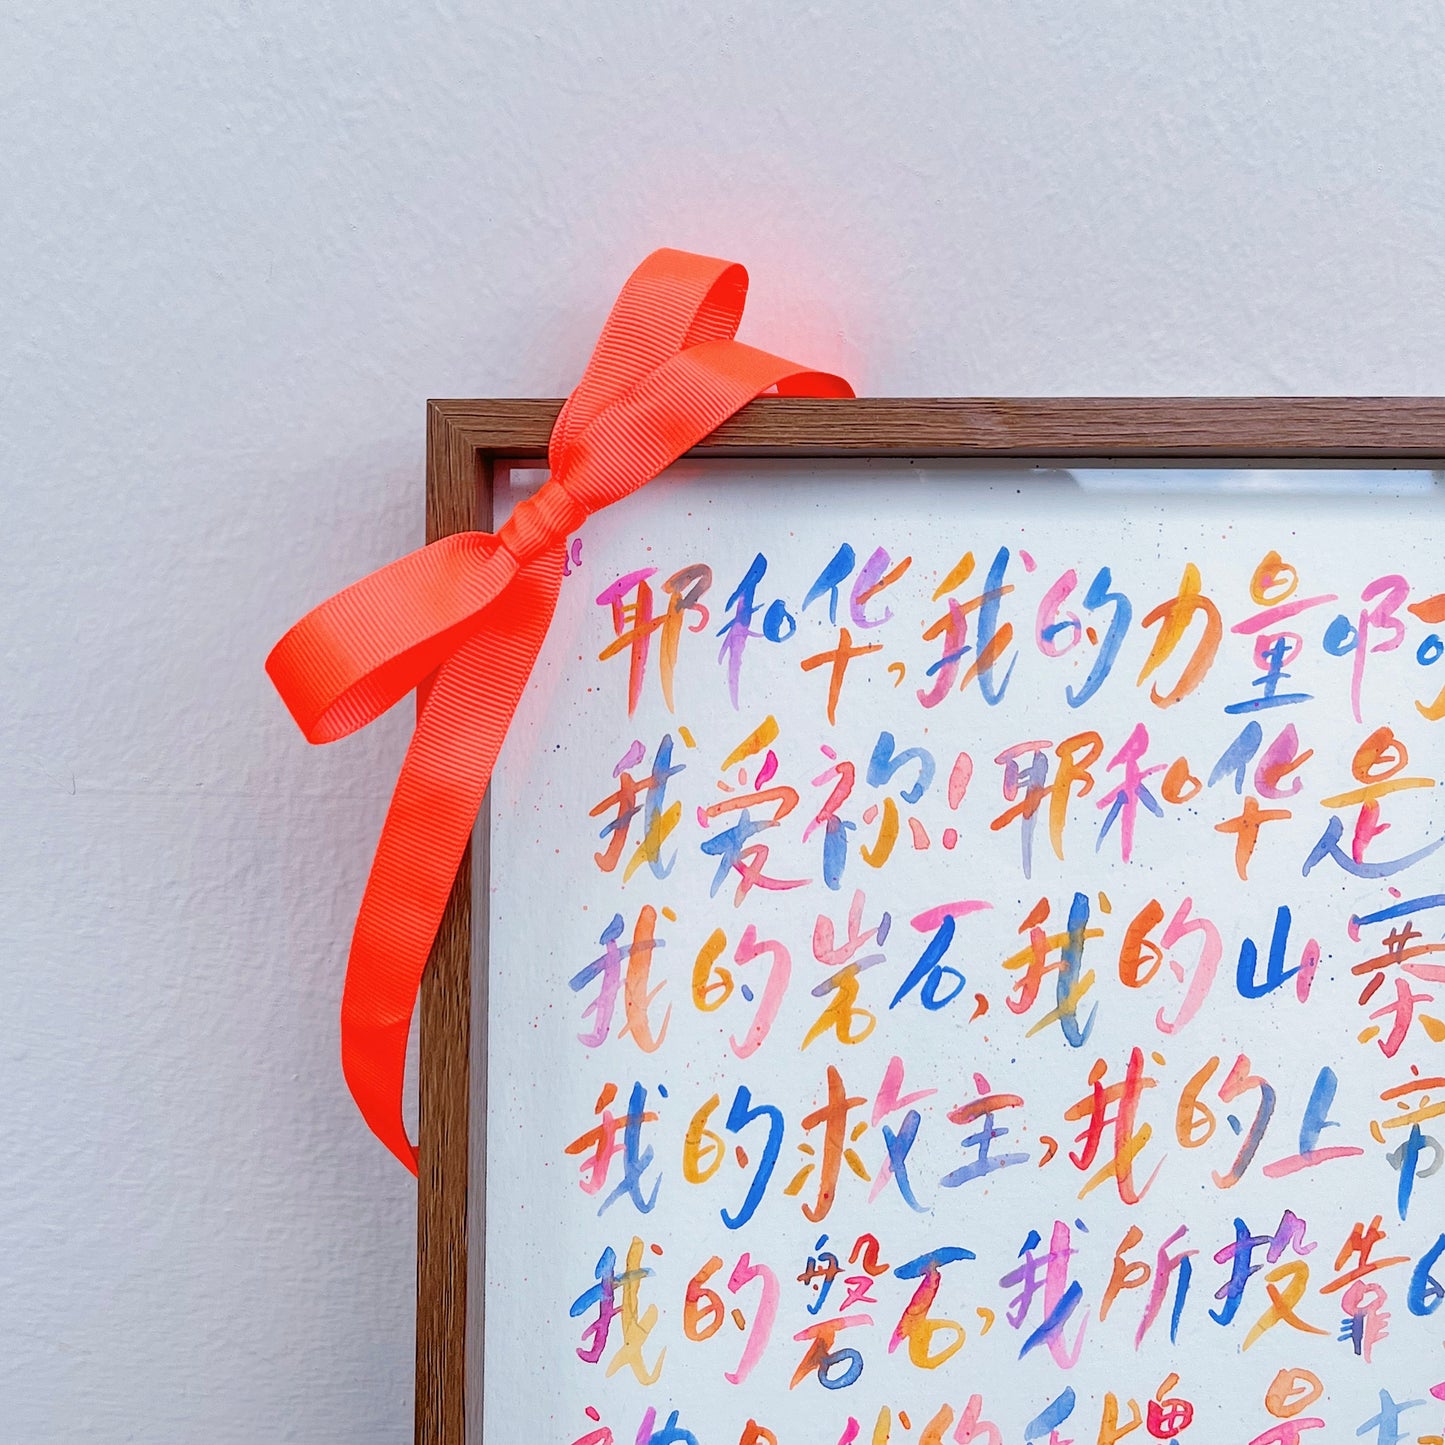 “耶和华，我的力量啊
我爱祢！耶和华是
我的岩石，我的山寨
我的救主，我的上帝
我的磐石，我所投靠的